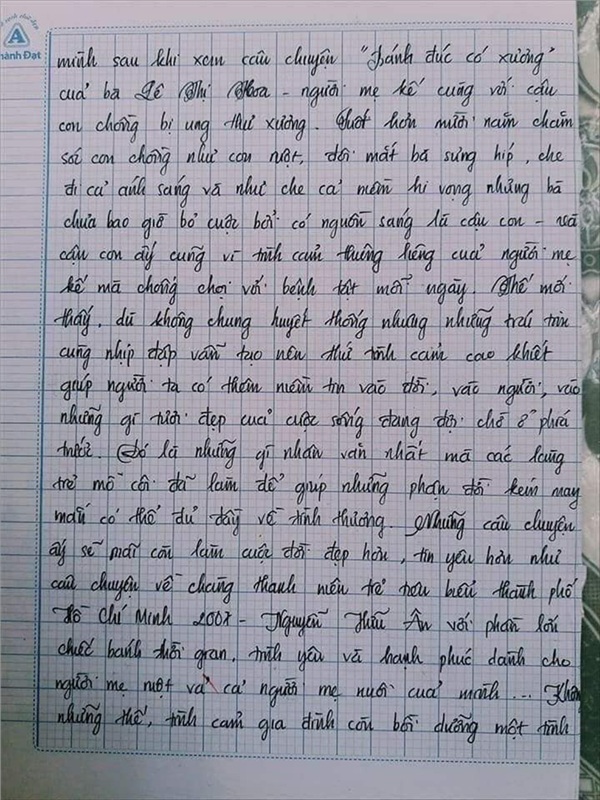 A
Thành Đạt
mình sau khi xem câu chuyện "Bánh đúc có xương"
của bà Lê Thị Hoa - người mẹ kế cùng với cậu
con chồng bị ung thư xương. Suốt hơn mười năm chăm
sóc con chồng như con ruột, đôi mắt bà sưng híp, che
đi cả ánh sáng và như che cả niềm hi vọng nhưng bà
chưa bao giờ bỏ cuộc bởi có nguồn sáng là cậu con - và
cậu con ấy cũng vì tình cảm thiêng liêng của người mẹ
kế mà chống chọi với bệnh tật mỗi ngày. Thế mới
thấy, dù không chung huyết thống nhưng những trái tim
cùng nhịp đập vẫn tạo nên thứ tình cảm cao khiết
giúp người ta có thêm niềm tin vào đời, vào người, vào
những gì tươi đẹp của cuộc sống đang đợi chờ ở phía
trước. Đó là những gì nhân văn nhất mà các làng
trẻ mồ côi đã làm để giúp những phận đời kém may
mắn có thể đủ đầy về tình thương. Những câu chuyện
ấy sẽ mãi còn làm cuộc đời đẹp hơn, tin yêu hơn như
câu chuyện về chàng thanh niên trẻ tiêu biểu thành phố
Hồ Chí Minh 2007 - Nguyễn Hữu Ân với phần lớn
chiếc bánh thời gian, tình yêu và hạnh phúc dành cho
người mẹ ruột và cả người mẹ nuôi của mình... Không
những thế, tình cảm gia đình còn bồi dưỡng một tình